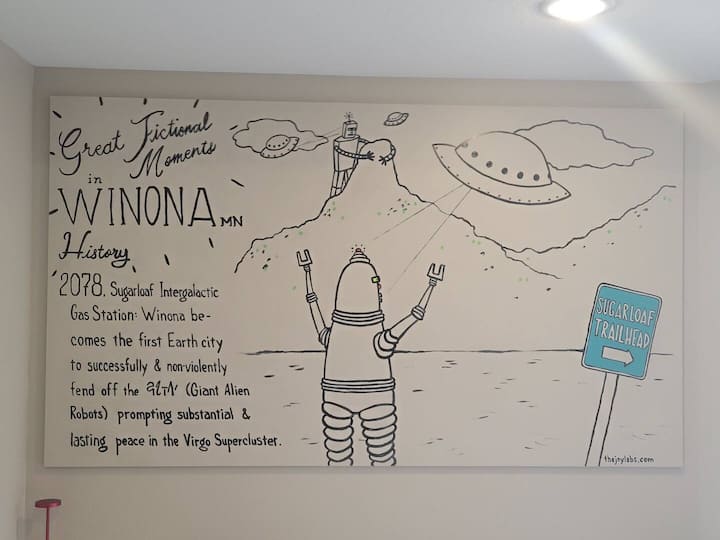 Great Fictional
Moments
in
WINONA MN
History
2078. Sugarloaf Intergalactic
Gas Station: Winona be-
comes the first Earth city
to successfully & non-violently
fend off the (Giant Alien
Robots) prompting substantial &
lasting peace in the Virgo Supercluster.
SUGARLOAF
TRAILHEAD
thejoylabs.com